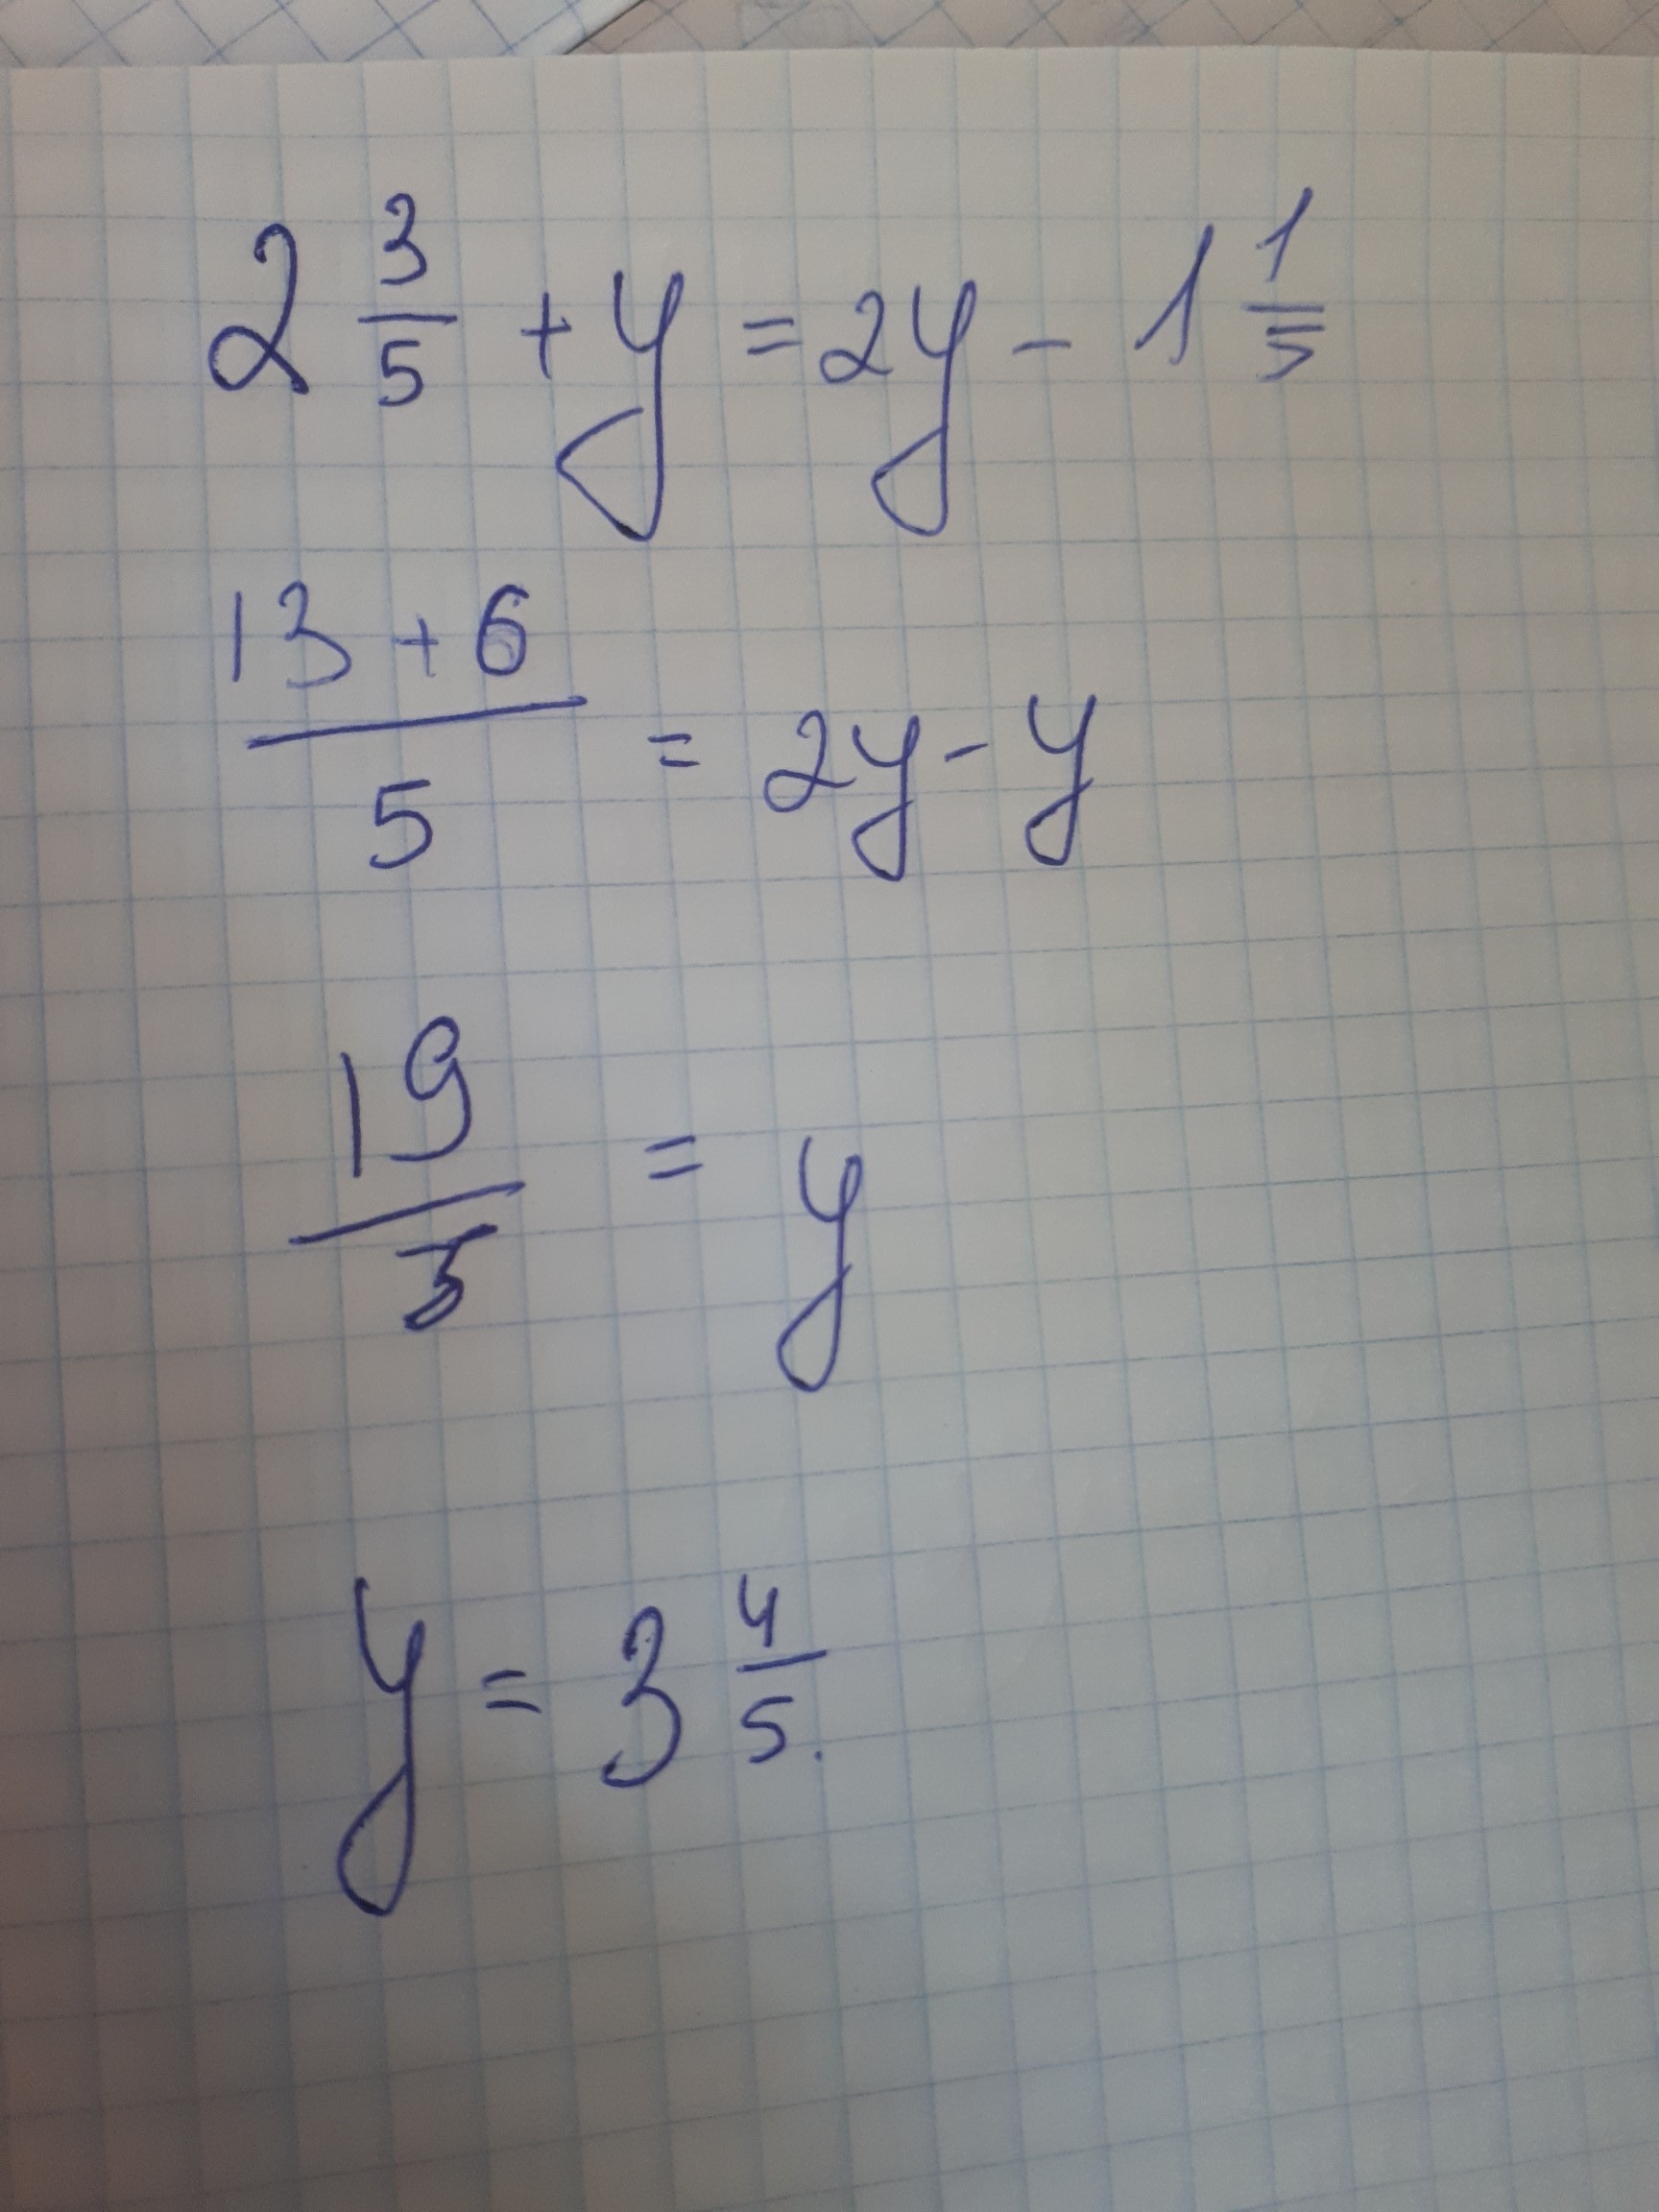 2 3/5 + y = 2y - 1 1/5
13 + 6/5 = 2y - y
19/5 = y
y = 3 4/5.